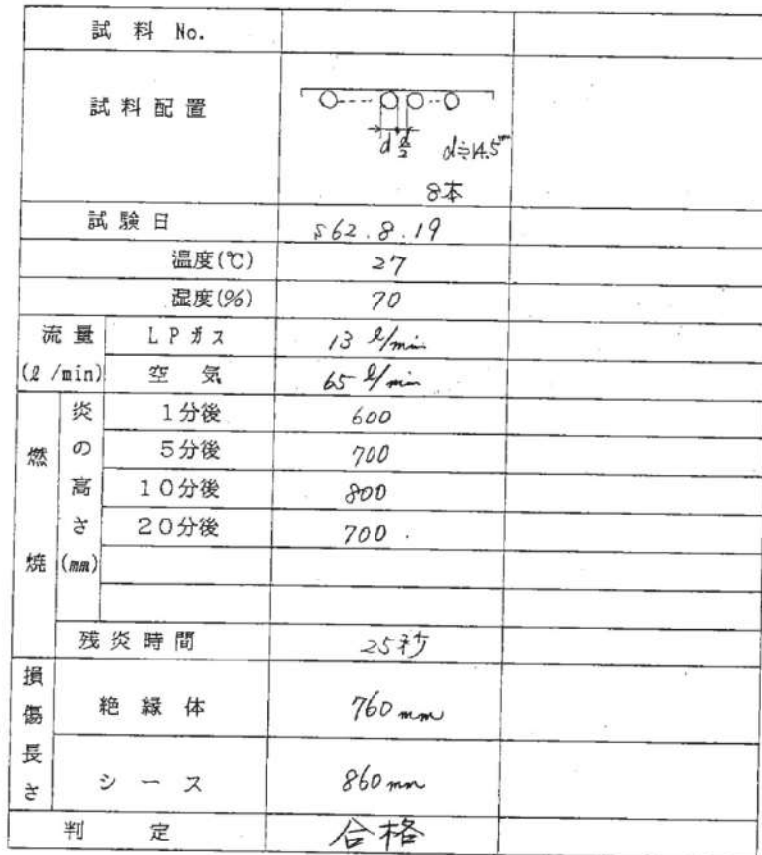 試料 No.
試料配置
d d/2 d≒14.5mm
8本
試験日 S62.8.19
温度(℃) 27
湿度(%) 70
流量 LPガス 13 ℓ/min
(ℓ/min) 空気 65 ℓ/min
燃焼 炎の高さ(mm) 1分後 600
5分後 700
10分後 800
20分後 700
残炎時間 25秒
損傷長さ 絶縁体 760mm
シース 860mm
判定 合格